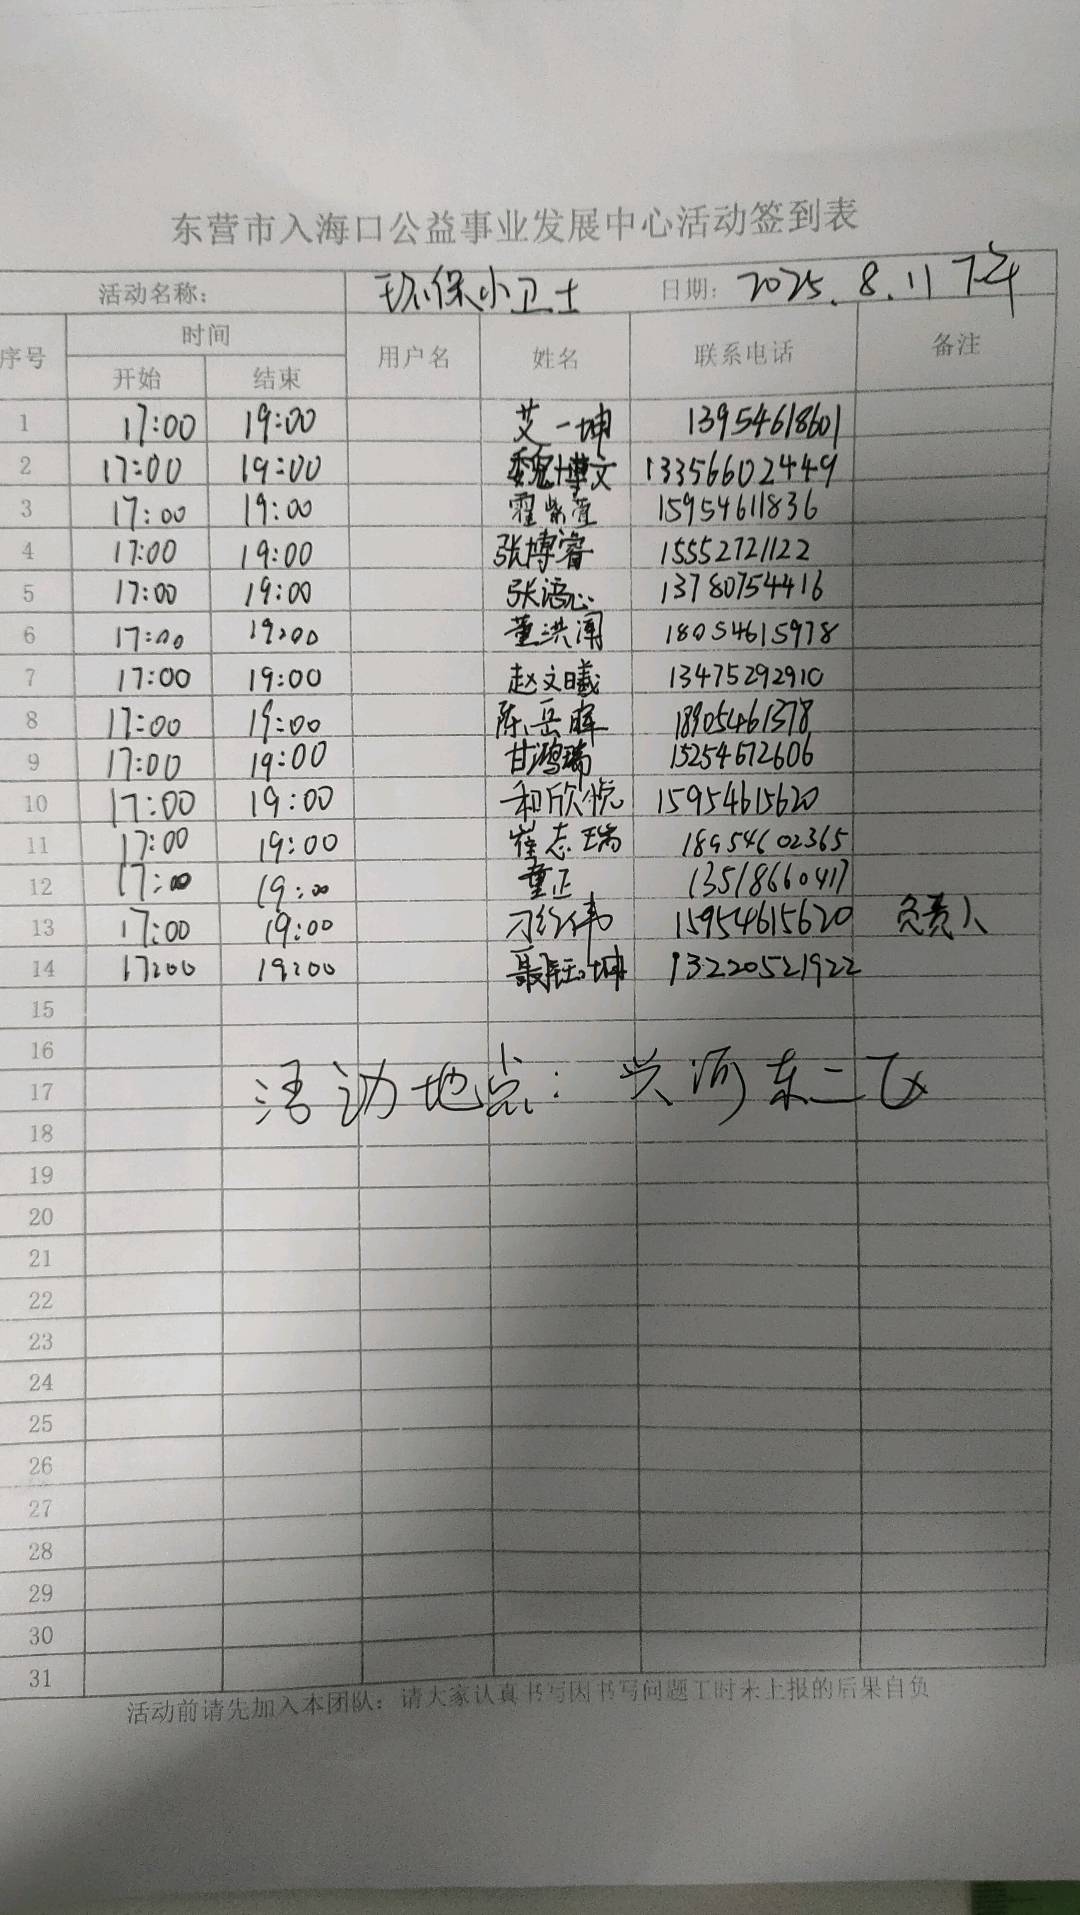 东营市入海口公益事业发展中心活动签到表
活动名称: 环保小卫士 日期: 2025.8.11 下午
序号 时间 用户名 姓名 联系电话 备注
开始 结束
1 17:00 19:00 艾一坤 13954618601
2 17:00 19:00 魏博文 13356602449
3 17:00 19:00 霍紫萱 15954611836
4 17:00 19:00 张博睿 15552721122
5 17:00 19:00 张语心 13780754416
6 17:00 19:00 董洪闻 18054615978
7 17:00 19:00 赵文曦 13475292910
8 17:00 19:00 陈岳晖 18905461378
9 17:00 19:00 甘鸿瑞 15254672606
10 17:00 19:00 和欣悦 15954615620
11 17:00 19:00 崔志瑞 18954602365
12 17:00 19:00 董正 13518660417
13 17:00 19:00 刁红伟 15954615620 负责人
14 17:00 19:00 聂钰坤 13220521922
15
16
17 活动地点: 兴河东二区
18
19
20
21
22
23
24
25
26
27
28
29
30
31
活动前请先加入本团队: 请大家认真书写因书写问题工时未上报的后果自负